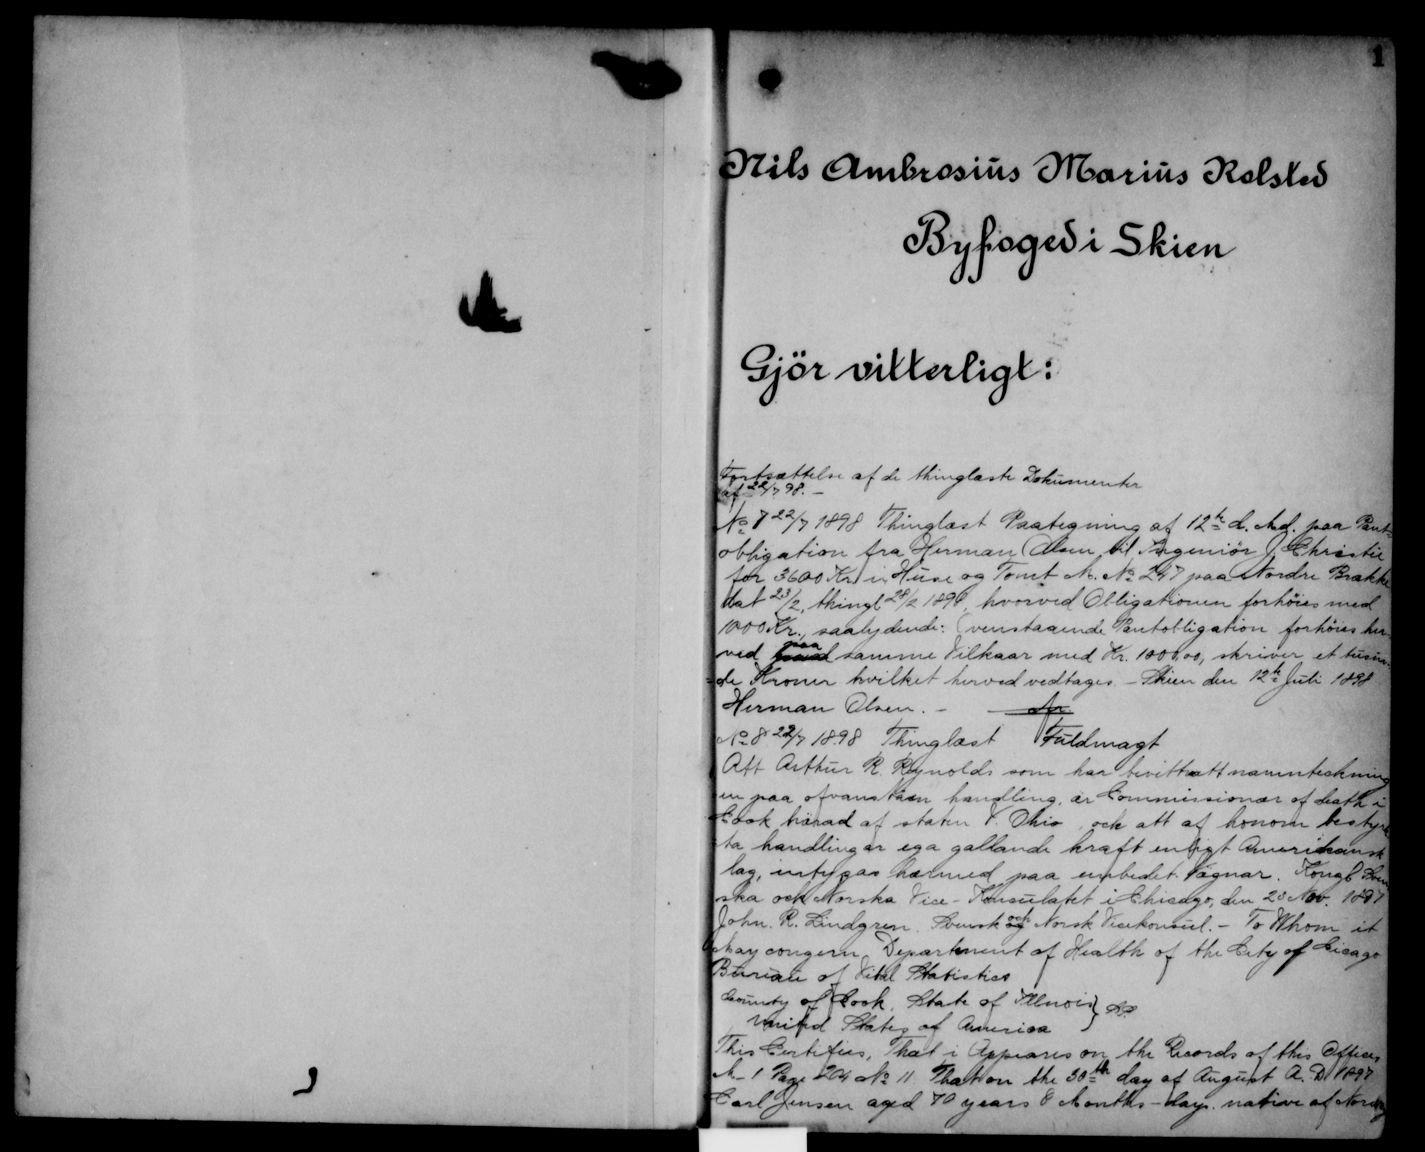 1
Nils Ambrosius Marius Kolsted
Byfoged i Skien
Gjör vitterligt:
Fortsættelse af de thinglæste Dokumenter
af 22/7 98. –
No 7 22/7 1898 Thinglæst Paategning af 12te d. Md. paa Pant-
obligation fra Herman Olsen til Ingeniör J. Christie
for 3600 Kr. i Huse og Tomt M. No 247 paa Nordre Brække
dat 23/2, thingl 28/2 1898, hvorved Obligationen forhöies med
1000 Kr., saalydende: Ovenstaaende Pantobligation forhöies her-
ved paa samme Vilkaar med Kr. 1000,00, skriver et tusin-
de Kroner hvilket herved vedtages. – Skien den 12te Juli 1898
Herman Olsen. –
No 8 22/7 1898 Thinglæst Fuldmagt
Att Arthur R. Reynolds som har bevittnatt namnteckning
en paa ofvanstaaen handling, är Commissionær of death i
Cook härad af staten V. Ohio, och att af honom bestyrk
ta handlingar ega gällande kraft enligt Amerikansk
lag, intygas hærmed paa embedet vägnar. Kongl Sven
ska och Norska Vice-Konsulatet i Chicago, den 20 Nov. 1897
John. R. Lindgren. Svensk och Norsk Vicekonsul. – To Whom it
may congern Department of Health of the City of Cicago
Bureau of Vital Statistics
County of Cook, State of Illinois
United States of America
This Certifies, That i Appeares on the Records of this Offices
M– 1 Page 204 No 11 That on the 30th day of August A. D. 1897
Carl Jensen aged 70 years 8 Months – days. native of Norway